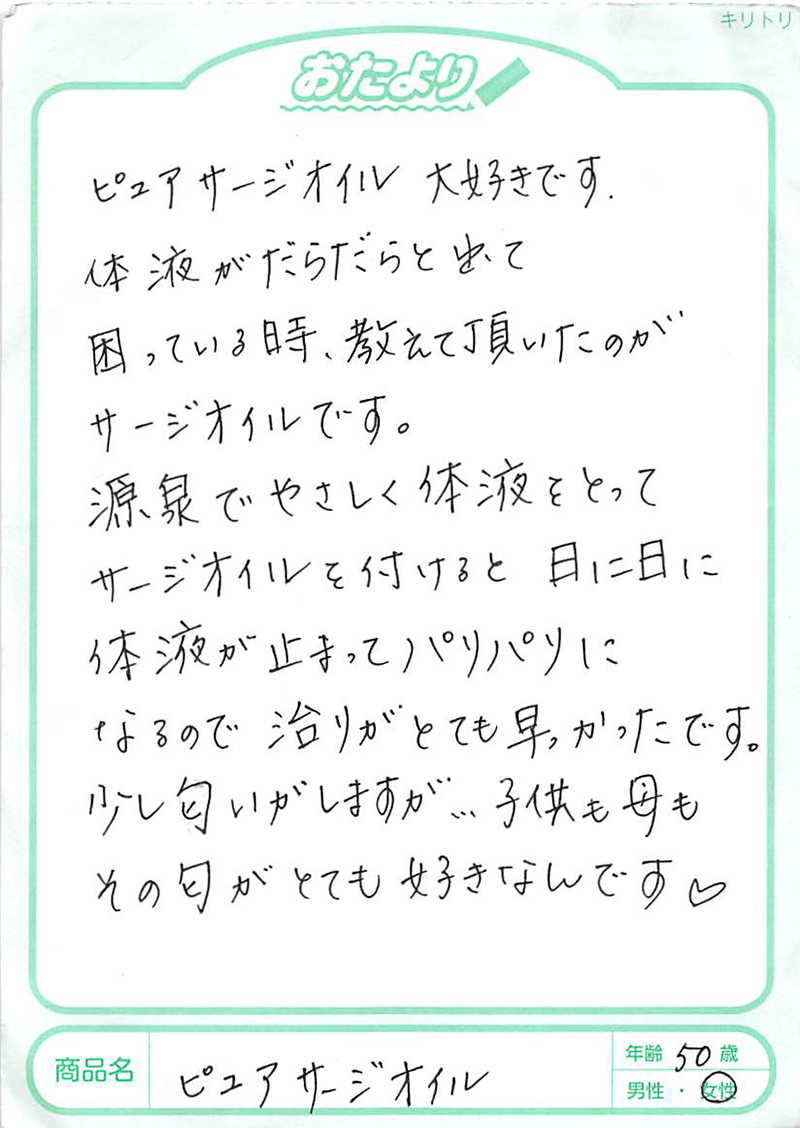 キリトリ
おたより
ピュアサージオイル 大好きです.
体液がだらだらと出て
困っている時、教えて頂いたのが
サージオイルです。
源泉でやさしく体液をとって
サージオイルを付けると 日に日に
体液が止まってパリパリに
なるので 治りがとても早っかったです。
少し匂いがしますが… 子供も母も
その匂がとても 好きなんです♡
商品名
ピュアサージオイル
年齢 50 歳
男性・女性